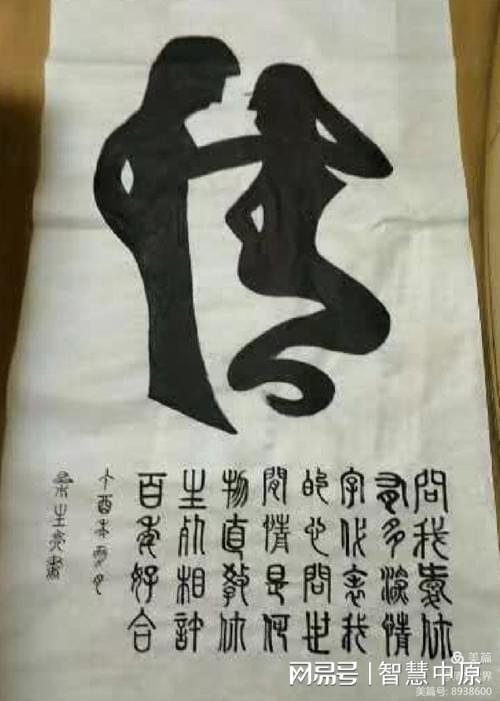 情
問我愛你
有多深情
字代表我
的心問世
間情是何
物直教你
生死相許
百年好合
丁酉年
美篇
网易号 | 智慧中原
美篇号: 8938600